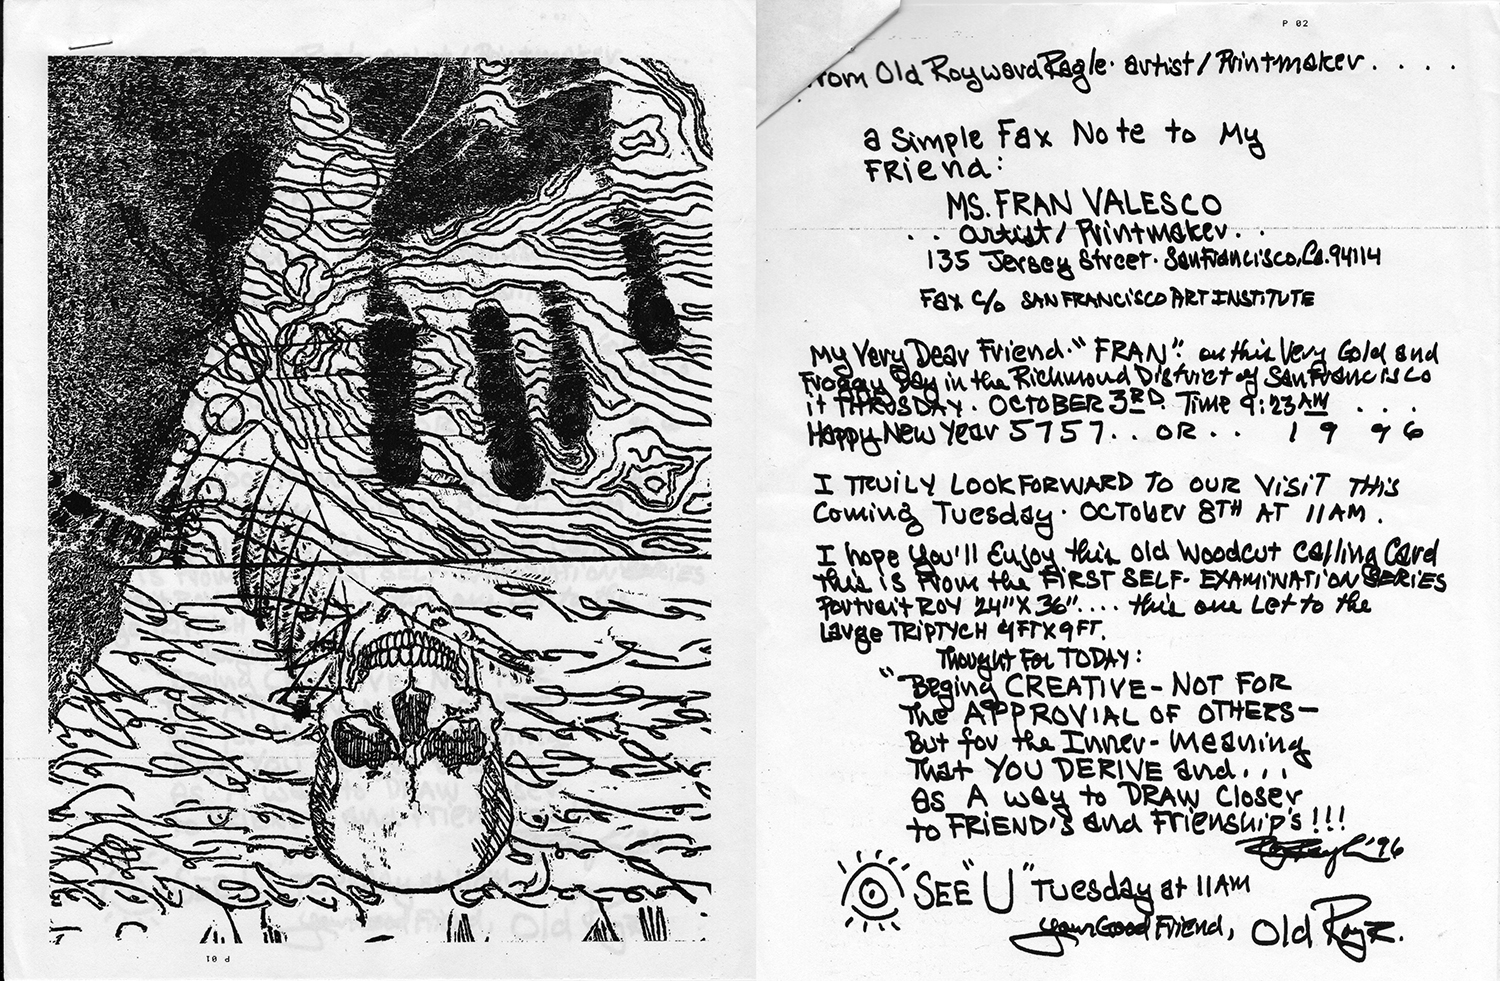 P 02
From Old Roy ward Ragle. artist/Printmaker . . . .
a Simple Fax Note to My
Friend:
MS. FRAN VALESCO
. . artist/Printmaker . .
135 Jersey Street. San Francisco, Ca. 94114
Fax c/o SAN FRANCISCO ART INSTITUTE
My Very Dear Friend. "FRAN". on this Very Gold and
Froggy Day in the Richmond District of San Francisco
it THRUSDAY. OCTOBER 3RD. Time 9:23 AM . . .
Happy New Year 5757 . . OR . . 1 9 9 6
I TRUILY LOOK FORWARD TO OUR VISIT THIS
Coming Tuesday. OCTOBER 8TH AT 11 AM.
I hope You'll Enjoy this Old Woodcut Calling Card
this is From the FIRST SELF-EXAMINATION SERIES
Portrait ROY 24"X36" .... this one Let to the
Large TRIPTYCH 4FTX9FT.
Thought For TODAY:
"Beging CREATIVE- NOT FOR
the APPROVIAL OF OTHERS-
But for the Inner-Meaning
that YOU DERIVE and...
as A way to DRAW Closer
to FRIEND's and Frienship's!!!
'96
SEE "U" Tuesday at 11AM
your Good Friend, Old Roy R.
P 01